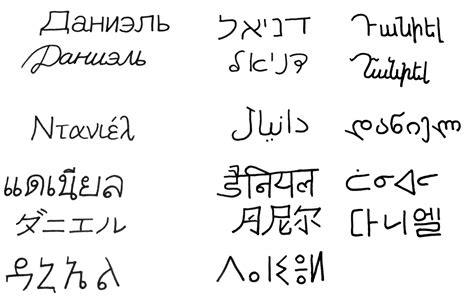 Даниэль דניאל Դանիել
Даниэль דניאל Դանիել
Ντανιέλ دانيال დანიელ
แดเนียล डैनियल ᑖᓂᐊᓪ
ダニエル 丹尼尔 다니엘
ዳኒኤል ⴷⴰⵏⵉⴻⵍ